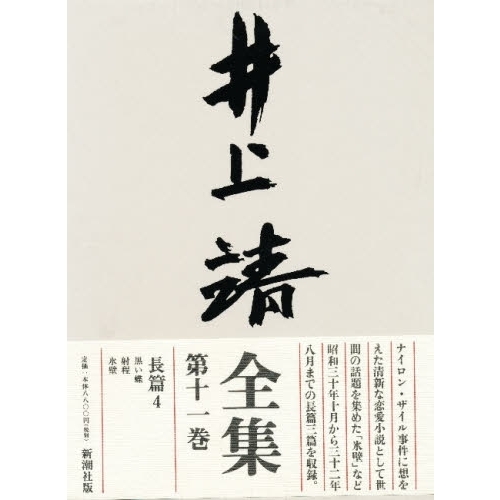 井上靖
全集
第十一巻
ナイロン・ザイル事件に想を
えた清新な恋愛小説として世
間の話題を集めた「氷壁」など
昭和三十年十月から三十二年
八月までの長篇三篇を収録。
長篇4
黒い蝶
射程
氷壁
定価・本体八八〇〇円(税別)
新潮社版